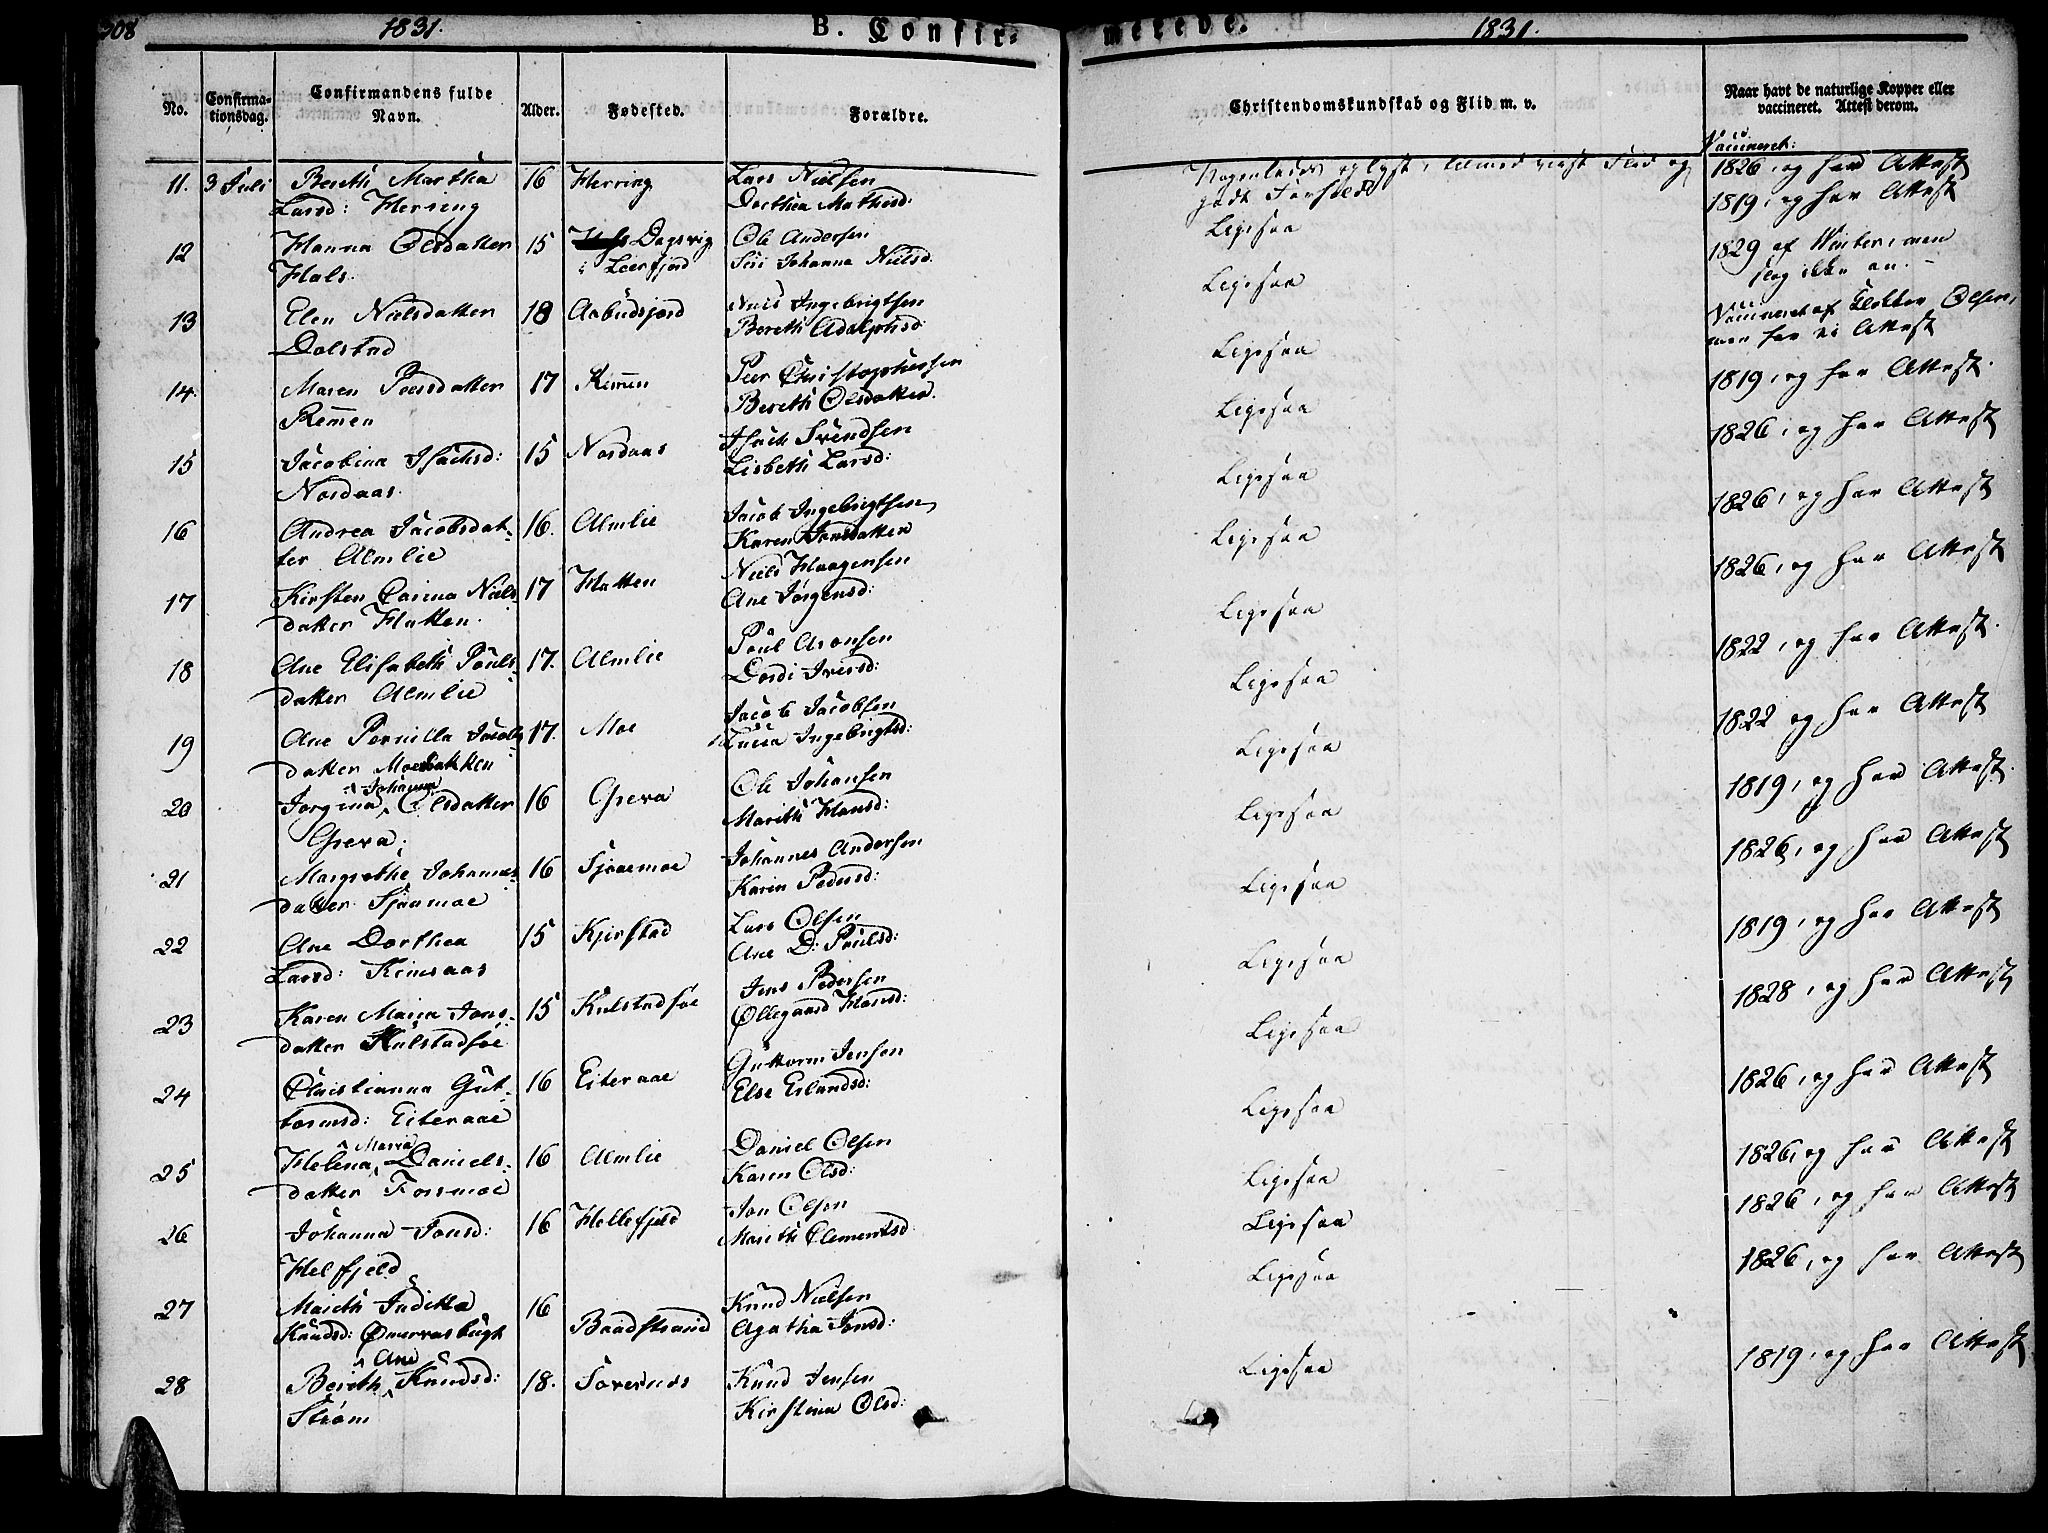 308 1831. B. Confir- merede. 1831.
No. Confirma-tionsdag. Confirmandens fulde Navn. Alder. Fødested. Forældre. Christendomskundskab og Flid m. v. Naar havt de naturlige Kopper eller vaccineret. Attest derom.
Vaccineret:
11. 3 Juli Bereth Martha 16 Herring Lars Nielsen 1826, og har Attest
Larsd: Herring Dorthea Mathisd: godt Forhold 1819, og har Attest
12 Hanna Olsdatter 15 Dagsvig Ole Andersen Ligesaa
Hals. i Leerfjord Siri Johanna Nielsd. 1829 af Winter, men
slog ikke an.
13 Elen Nielsdatter 18 Aabudsjord Niels Ingebrigtsen Ligesaa
Dolstad Bereth Adolphsd: Vaccineret af Klokker Olsen,
men har ei Attest
14. Maren Peersdatter 17 Remen Peer Christophersen Ligesaa 1819, og har Attest.
Remen Bereth Olsdatter.
15 Jacobina Isachsd: 15 Nordaas Isach Svendsen Ligesaa 1826, og har Attest
Nordaas. Lisbeth Larsd:
16 Andrea Jacobsdat- 16. Almlie Jacob Ingebrigtsen Ligesaa 1826, og har Attest
ter Almlie Karen Jonsdatter
17 Kirsten Carina Niels 17 Hatten Niels Haagensen Ligesaa 1826, og har Attest
datter Hatten. Ane Jørgensd:
18 Ane Elisabeth Pouls- 17. Almlie Poul Aronsen Ligesaa 1822, og har Attest.
datter Almlie Dordi Iversd:
19 Ane Pernilla Jacobs 17. Moe Jacob Jacobsen Ligesaa 1822 og har Attest
datter Moebakken Ingebrigtsd:
20 Jorgina Johanna Olsdatter 16 Greva Ole Johansen Ligesaa 1819, og har Attest.
Greva. Marith Hansd:
21 Margrethe Johannes- 16 Sjaamoe Johannes Andersen Ligesaa 1826, og har Attest
datter Sjaamoe Karen Pedersd:
22 Ane Dorthea 15 Kjerstad Lars Olsen Ligesaa 1819, og har Attest
Larsd: Remsaas Ane D: Poulsd:
23 Karen Maria Jens- 15 Kulstadsøe Jens Pedersen Ligesaa 1828, og har Attest
datter Kulstadsøe Øllegaard Hansd:
24 Christianna Gut- 16 Eiteraae Guttorm Jensen Ligesaa 1826, og har Attest
tormsd: Eiteraae Else Erlandsd:
25 Helena Maria Daniels- 16 Almlie Daniel Olsen Ligesaa 1826, og har Attest
datter Forsmoe Karen Olsd:
26 Johanna Jonsd: 16 Hellefjeld Jon Olsen Ligesaa 1826, og har Attest
Helfjeld Marith Clementsd:
27 Mareth Juditta 16 Baadstrand Knud Nielsen Ligesaa 1826, og har Attest
Knudsd: Agatha Jensd:
28 Bereth Ane Knudsd: 18. Sørernes Knud Jensen Ligesaa 1819, og har Attest
Strøm Kirstina Olsd: